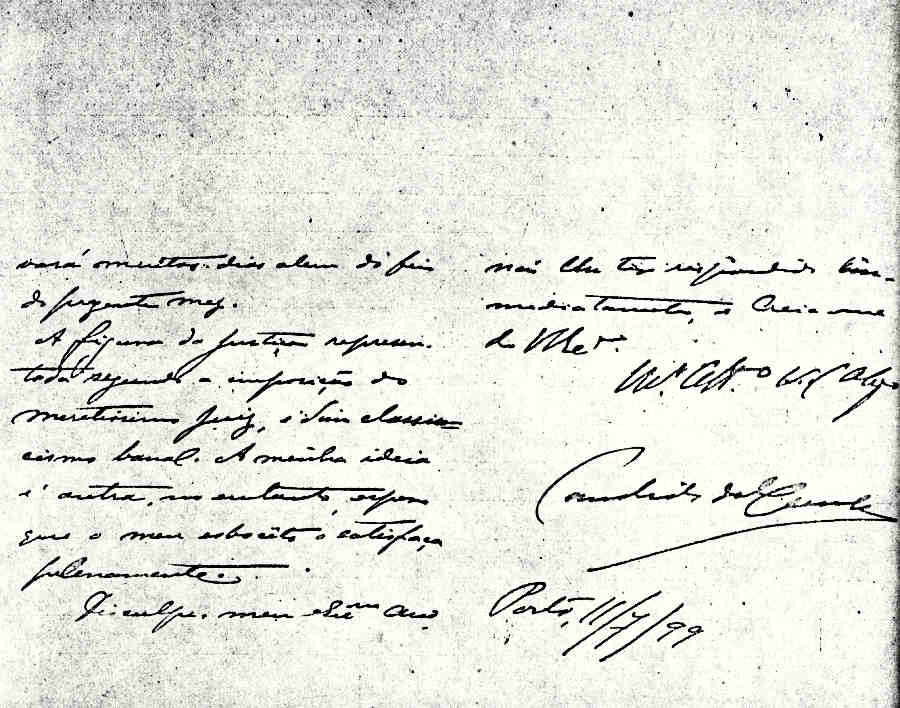 vará muitos dias alem do fim
do presente mez.
A figura da Justiça represen-
tada segundo a imposição do
meretissimo Juiz, é d'um classi-
cismo banal. A minha ideia
é outra, no entanto, espero
que o meu esboceto o satisfaça
plenamente.
Disculpe, meu Exmo Amo,
não lhe ter respondido im-
mediatamente, e creia-me
de V. Ex.
Candido da Cunha
Porto, 11/7/99